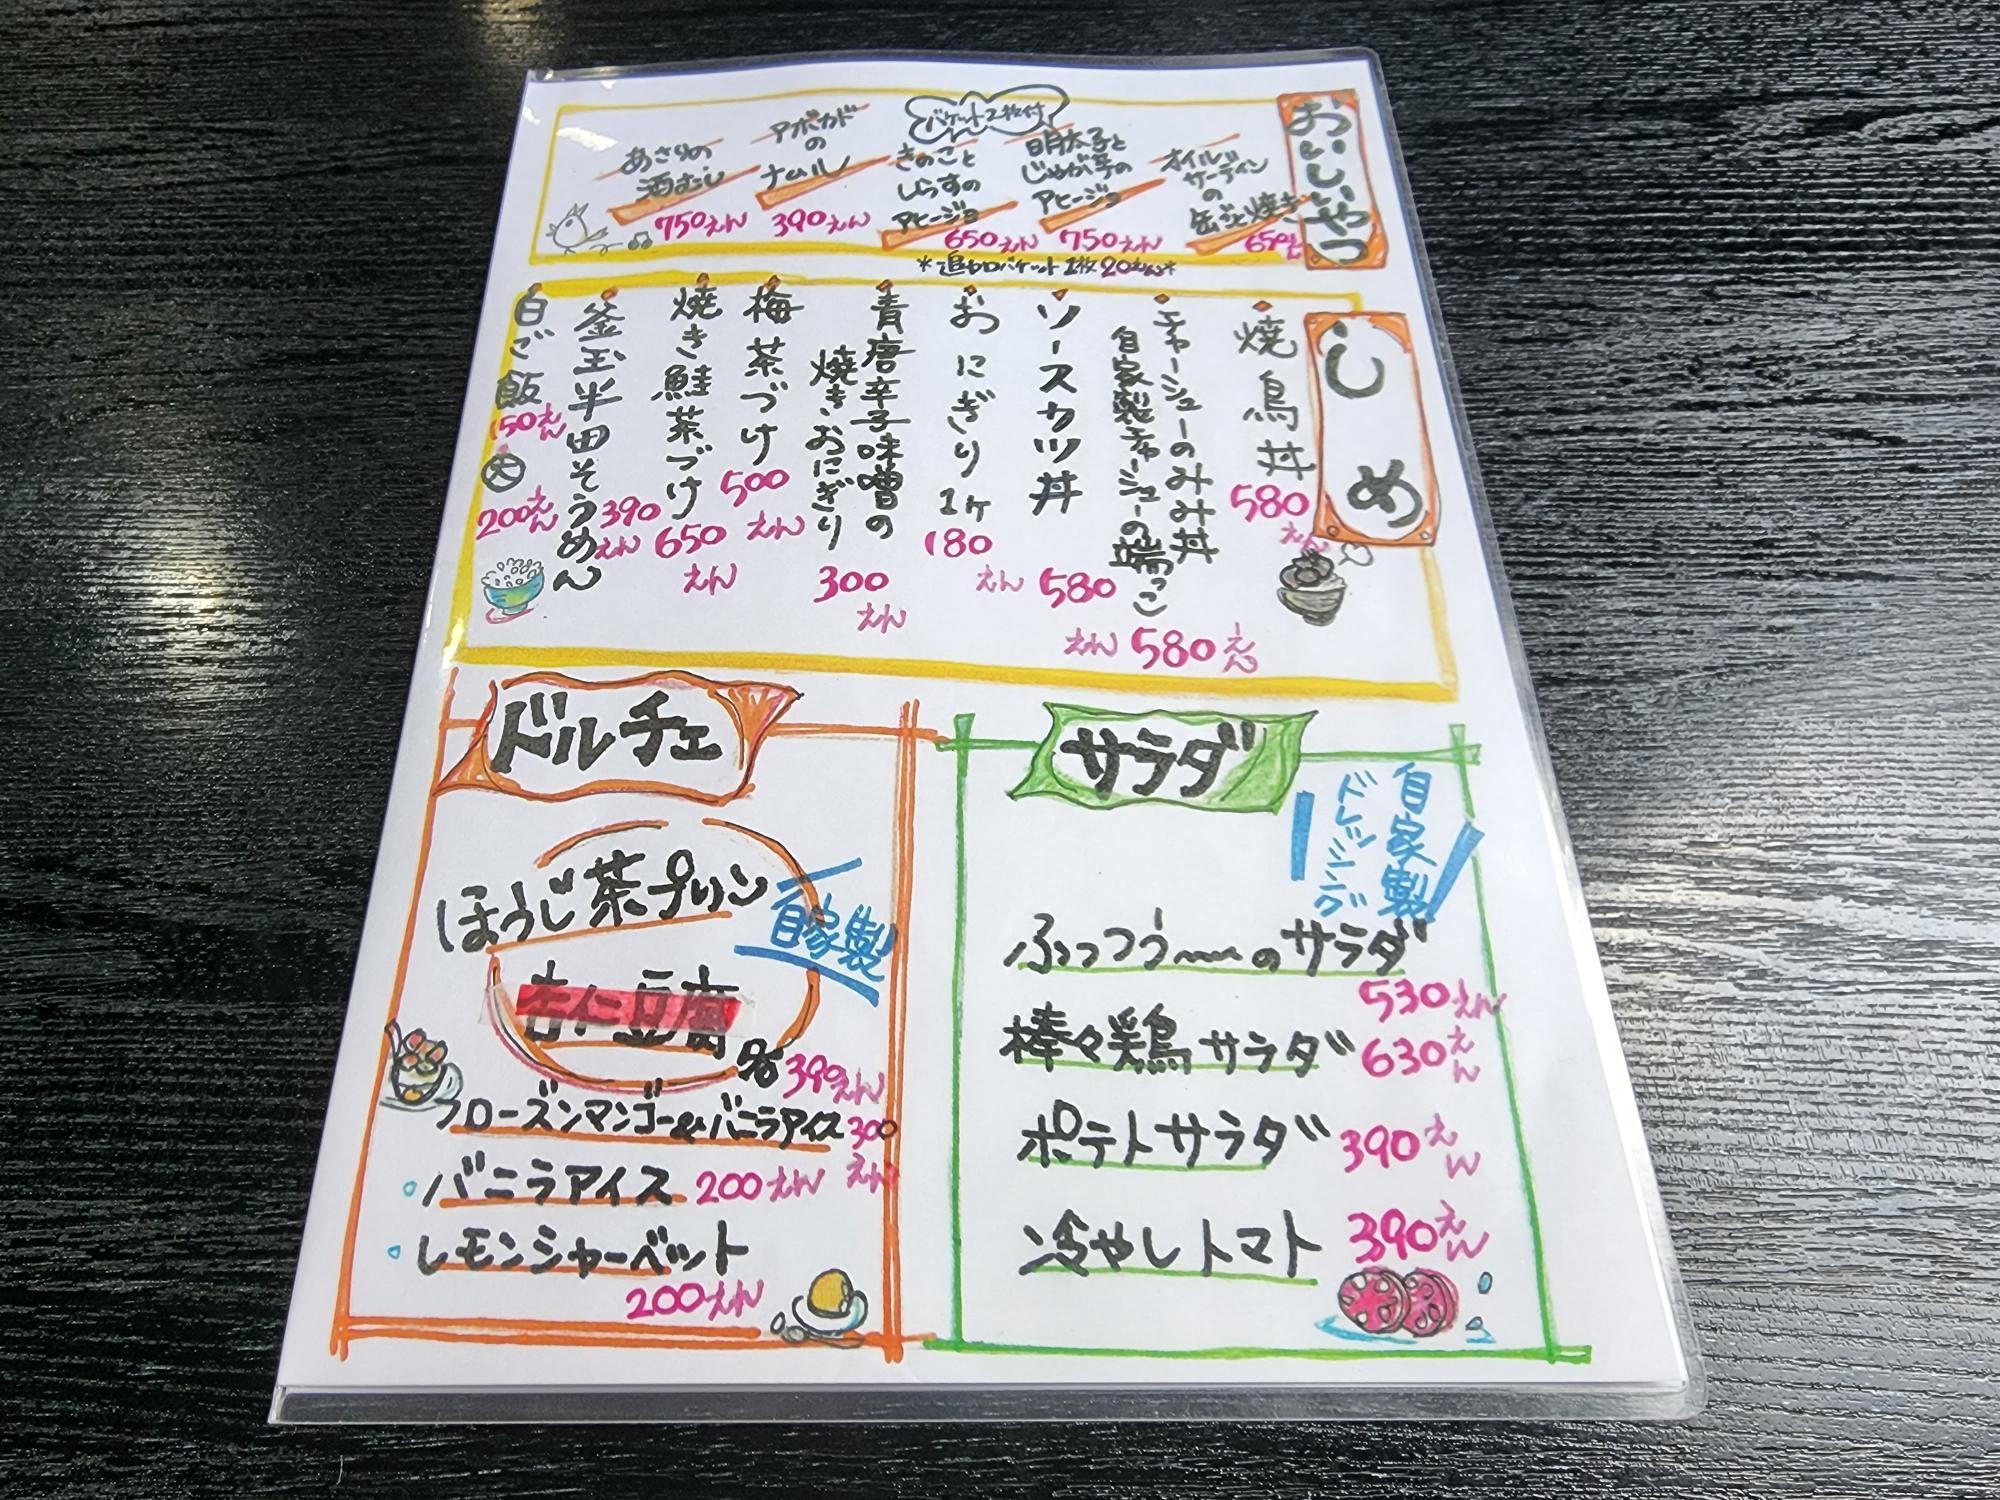 おいしいやつ
オイルサーディン
の
缶ごと焼き
650えん
バケット2枚付
明太子と
じゃが芋の
アヒージョ
750えん
きのこと
しらすの
アヒージョ
650えん
アボカド
の
ナムル
390えん
あさりの
酒むし
750えん
*追加バケット1枚20えん*
しめ
焼鳥丼
580えん
チャーシューのみみ丼
自家製チャーシューの端っこ
580えん
ソースカツ丼
580えん
おにぎり1ヶ
180えん
青唐辛子味噌の
焼きおにぎり
300えん
梅茶づけ
500えん
焼き鮭茶づけ
650えん
釜玉半田そうめん
390えん
白ご飯
150えん
大
200えん
ドルチェ
ほうじ茶プリン
自家製
杏仁豆腐
各390えん
フローズンマンゴー&バニラアイス300えん
バニラアイス 200えん
レモンシャーベット
200えん
サラダ
自家製
ドレッシング
ふっつう〜のサラダ
530えん
棒々鶏サラダ 630えん
ポテトサラダ 390えん
冷やしトマト 390えん